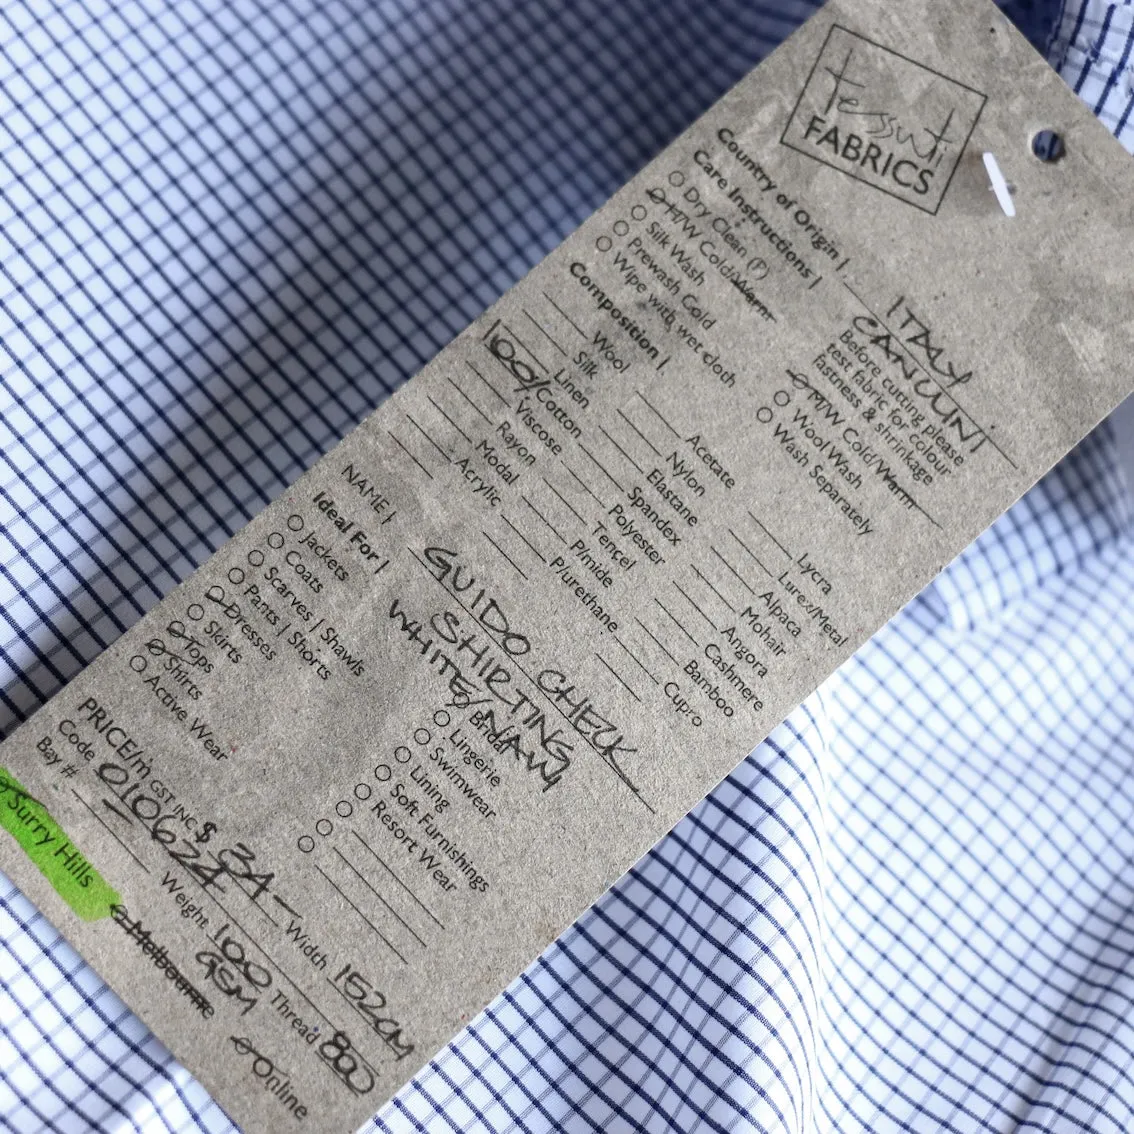 tessuti
FABRICS
Country of Origin | ITALY
CANCLINI
Care Instructions |
Before cutting please
test fabric for colour
fastness & shrinkage
Dry Clean (P)
H/W Cold/Warm
Silk Wash
Prewash Cold
Wipe with wet cloth
M/W Cold/Warm
Wool Wash
Wash Separately
Composition |
Wool
Silk
Linen
100/Cotton
Viscose
Rayon
Modal
Acrylic
Acetate
Nylon
Elastane
Spandex
Polyester
Tencel
P/mide
P/urethane
Lycra
Lurex/Metal
Alpaca
Mohair
Angora
Cashmere
Bamboo
Cupro
NAME | GUIDO CHECK
SHIRTING
WHITE/NAVY
Ideal For |
Jackets
Coats
Scarves | Shawls
Pants | Shorts
Dresses
Skirts
Tops
Shirts
Active Wear
Bridal
Lingerie
Swimwear
Lining
Soft Furnishings
Resort Wear
PRICE/m GST INC $ 34- Width 152CM
Code 010624 Weight 100 GSM Thread 800
Bay #
Surry Hills
Melbourne
Online